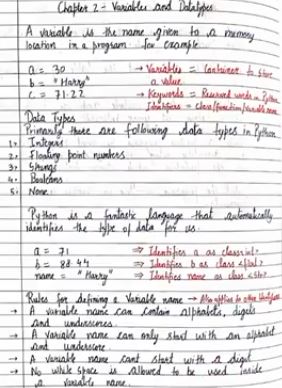 Chapter 2 - Variables and Datatypes
A variable is the name given to a memory
location in a program. for example
a = 30 → Variables = Container to store
a value.
b = "Harry" → Keywords = Reserved words in Python
c = 71.22 Identifiers = class/function/variable name
Data Types
Primarily there are following data types in Python
1. Integers
2. Floating point numbers
3. Strings
4. Booleans
5. None
Python is a fantastic language that automatically
identifies the type of data for us.
a = 71 ⇒ Identifies a as class<int>
b = 88.44 ⇒ Identifies b as class <float>
name = "Harry" ⇒ Identifies name as class <str>
Rules for defining a Variable name → Also applies to other identifiers
→ A variable name can contain alphabets, digits
and underscores.
→ A variable name can only start with an alphabet
and underscore.
→ A variable name cant start with a digit
→ No while space is allowed to be used inside
a variable name.